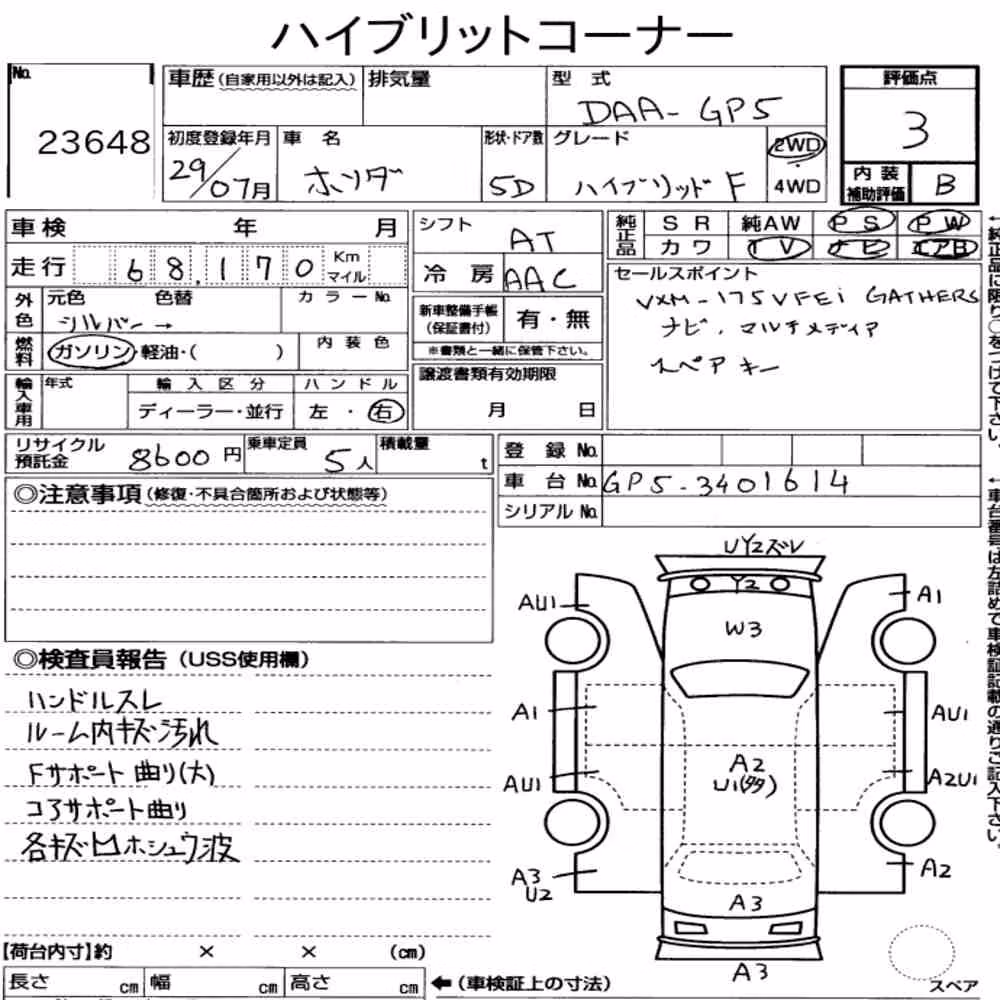 ハイブリットコーナー
No. 23648
車歴(自家用以外は記入) 排気量 型 式 DAA-GP5
初度登録年月 29/07月 車 名 ホンダ 形状・ドア数 5D グレード ハイブリッド F 2WD 4WD
評価点 3
内 装 補助評価 B
車検 年 月
走行 68,170 Km マイル
外色 元色 色替 カラーNo.
シルバー →
燃料 ガソリン・軽油・( ) 内装色
輸入車用 年式 輸入区分 ハンドル
ディーラー・並行 左・右
シフト AT
冷 房 AAC
新車整備手帳(保証書付) 有・無
※書類と一緒に保管下さい。
譲渡書類有効期限
月 日
純正品 SR 純AW PS PW
カワ TV ナビ エアB
セールスポイント
VXM-175VFEi GATHERS
ナビ、マルチメディア
スペアキー
リサイクル預託金 8600円 乗車定員 5人 積載量 t
登 録 No.
車 台 No. GP5-3401614
シリアル No.
◎注意事項(修復・不具合箇所および状態等)
◎検査員報告(USS使用欄)
ハンドルスレ
ルーム内キズ汚れ
Fサポート曲り(大)
コアサポート曲り
各キズ凹ホシュウ波
UY2ズレ
Y2
AU1 A1
W3
A1 AU1
A2
U1(多)
AU1 A2U1
A3 U2 A2
A3
A3
スペア
【荷台内寸】約 × × (cm)
長さ cm 幅 cm 高さ cm ←(車検証上の寸法)
←純正品に限り○をつけて下さい。
←車台番号は左詰めで車検証記載の通りご記入下さい。